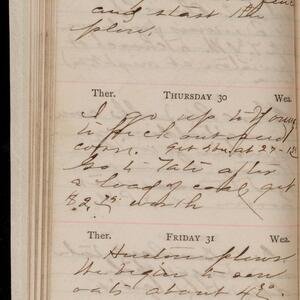 and start the
plow.
Ther. THURSDAY 30 Wea.
I go up to
to pick out seed
corn. get 5 bu. at
Go to Tate after
a load of coal get
$2.75 worth
Ther. FRIDAY 31 Wea.
Huston plows
he begins to sow
oats about 4 30